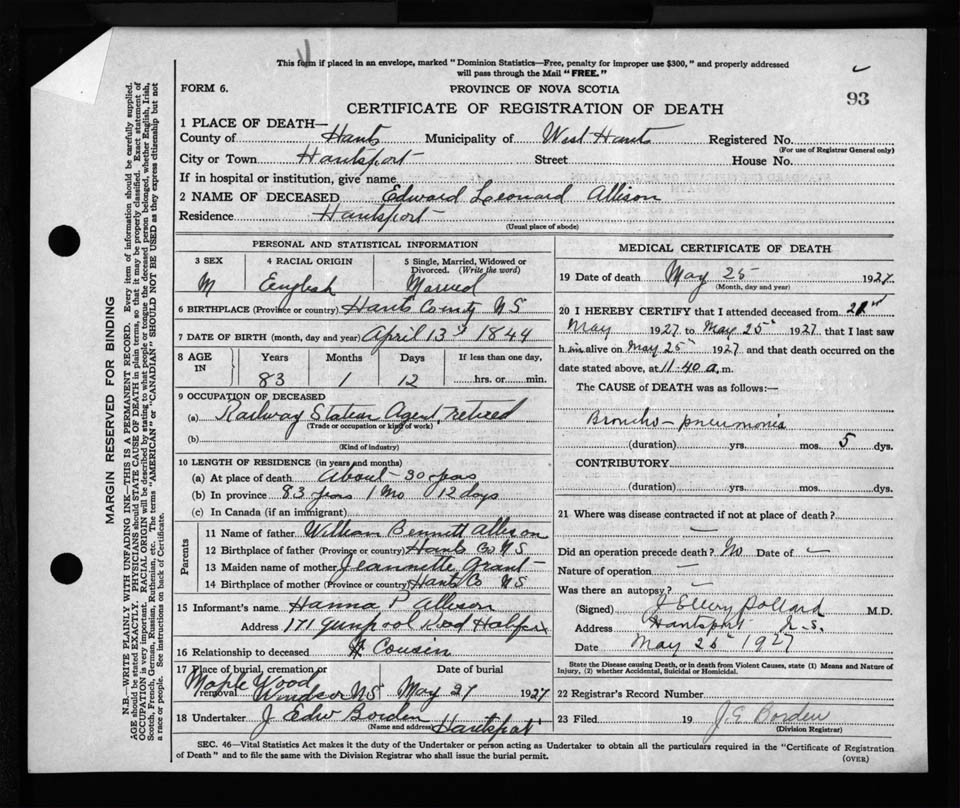 This form if placed in an envelope, marked "Dominion Statistics—Free, penalty for improper use $300," and properly addressed
will pass through the Mail "FREE."
FORM 6.
PROVINCE OF NOVA SCOTIA
93
CERTIFICATE OF REGISTRATION OF DEATH
1 PLACE OF DEATH—
County of Hants Municipality of West Hants Registered No.
(For use of Registrar General only)
City or Town Hantsport Street House No.
If in hospital or institution, give name
2 NAME OF DECEASED Edward Leonard Allison
Residence Hantsport
(Usual place of abode)
PERSONAL AND STATISTICAL INFORMATION
3 SEX 4 RACIAL ORIGIN 5 Single, Married, Widowed or
Divorced. (Write the word)
M English Married
6 BIRTHPLACE (Province or country) Hants County N S
7 DATE OF BIRTH (month, day and year) April 13 1844
8 AGE IN Years Months Days If less than one day,
83 1 12 hrs. or min.
9 OCCUPATION OF DECEASED
(a) Railway Station Agent, retired
(Trade or occupation or kind of work)
(b)
(Kind of industry)
10 LENGTH OF RESIDENCE (in years and months)
(a) At place of death About 30 years
(b) In province 83 years 1 Mo 12 days
(c) In Canada (if an immigrant)
Parents
11 Name of father William Bennett Allison
12 Birthplace of father (Province or country) Hants Co N S
13 Maiden name of mother Jeannette Grant
14 Birthplace of mother (Province or country) Hants Co N S
15 Informant's name Hanna P Allison
Address 171 Road Halifax
16 Relationship to deceased Cousin
17 Place of burial, cremation or removal Date of burial
Maple Wood Windsor N S May 27 1927
18 Undertaker J Edw Borden Hantsport
(Name and address)
MEDICAL CERTIFICATE OF DEATH
19 Date of death May 25 1927
(Month, day and year)
20 I HEREBY CERTIFY that I attended deceased from
May 1927 to May 25th 1927 that I last saw
him alive on May 25th 1927 and that death occurred on the
date stated above, at 11.40 a.m.
The CAUSE of DEATH was as follows:—
Broncho-pneumonia
(duration) yrs. mos. 5 dys.
CONTRIBUTORY
(duration) yrs. mos. dys.
21 Where was disease contracted if not at place of death?
Did an operation precede death? No Date of —
Nature of operation —
Was there an autopsy? —
(Signed) J Ellery Pollard M.D.
Address Hantsport N.S.
Date May 25th 1927
State the Disease causing Death, or in death from Violent Causes, state (1) Means and Nature of
Injury, (2) whether Accidental, Suicidal or Homicidal.
22 Registrar's Record Number
23 Filed 19 J. E Borden
(Division Registrar)
SEC. 46—Vital Statistics Act makes it the duty of the Undertaker or person acting as Undertaker to obtain all the particulars required in the "Certificate of Registration
of Death" and to file the same with the Division Registrar who shall issue the burial permit.
(OVER)
MARGIN RESERVED FOR BINDING
N.B.—WRITE PLAINLY WITH UNFADING INK—THIS IS A PERMANENT RECORD. Every item of information should be carefully supplied.
AGE should be stated EXACTLY. PHYSICIANS should STATE CAUSE OF DEATH in plain terms, so that it may be properly classified. Exact statement of
OCCUPATION is very important. RACIAL ORIGIN will be described by stating to what people or tongue the deceased person belonged, whether English, Irish,
Scotch, French, German, Russian, Ruthenian, etc. The terms "AMERICAN" or "CANADIAN" SHOULD NOT BE USED as they express citizenship but not
a race or people. See instructions on back of Certificate.